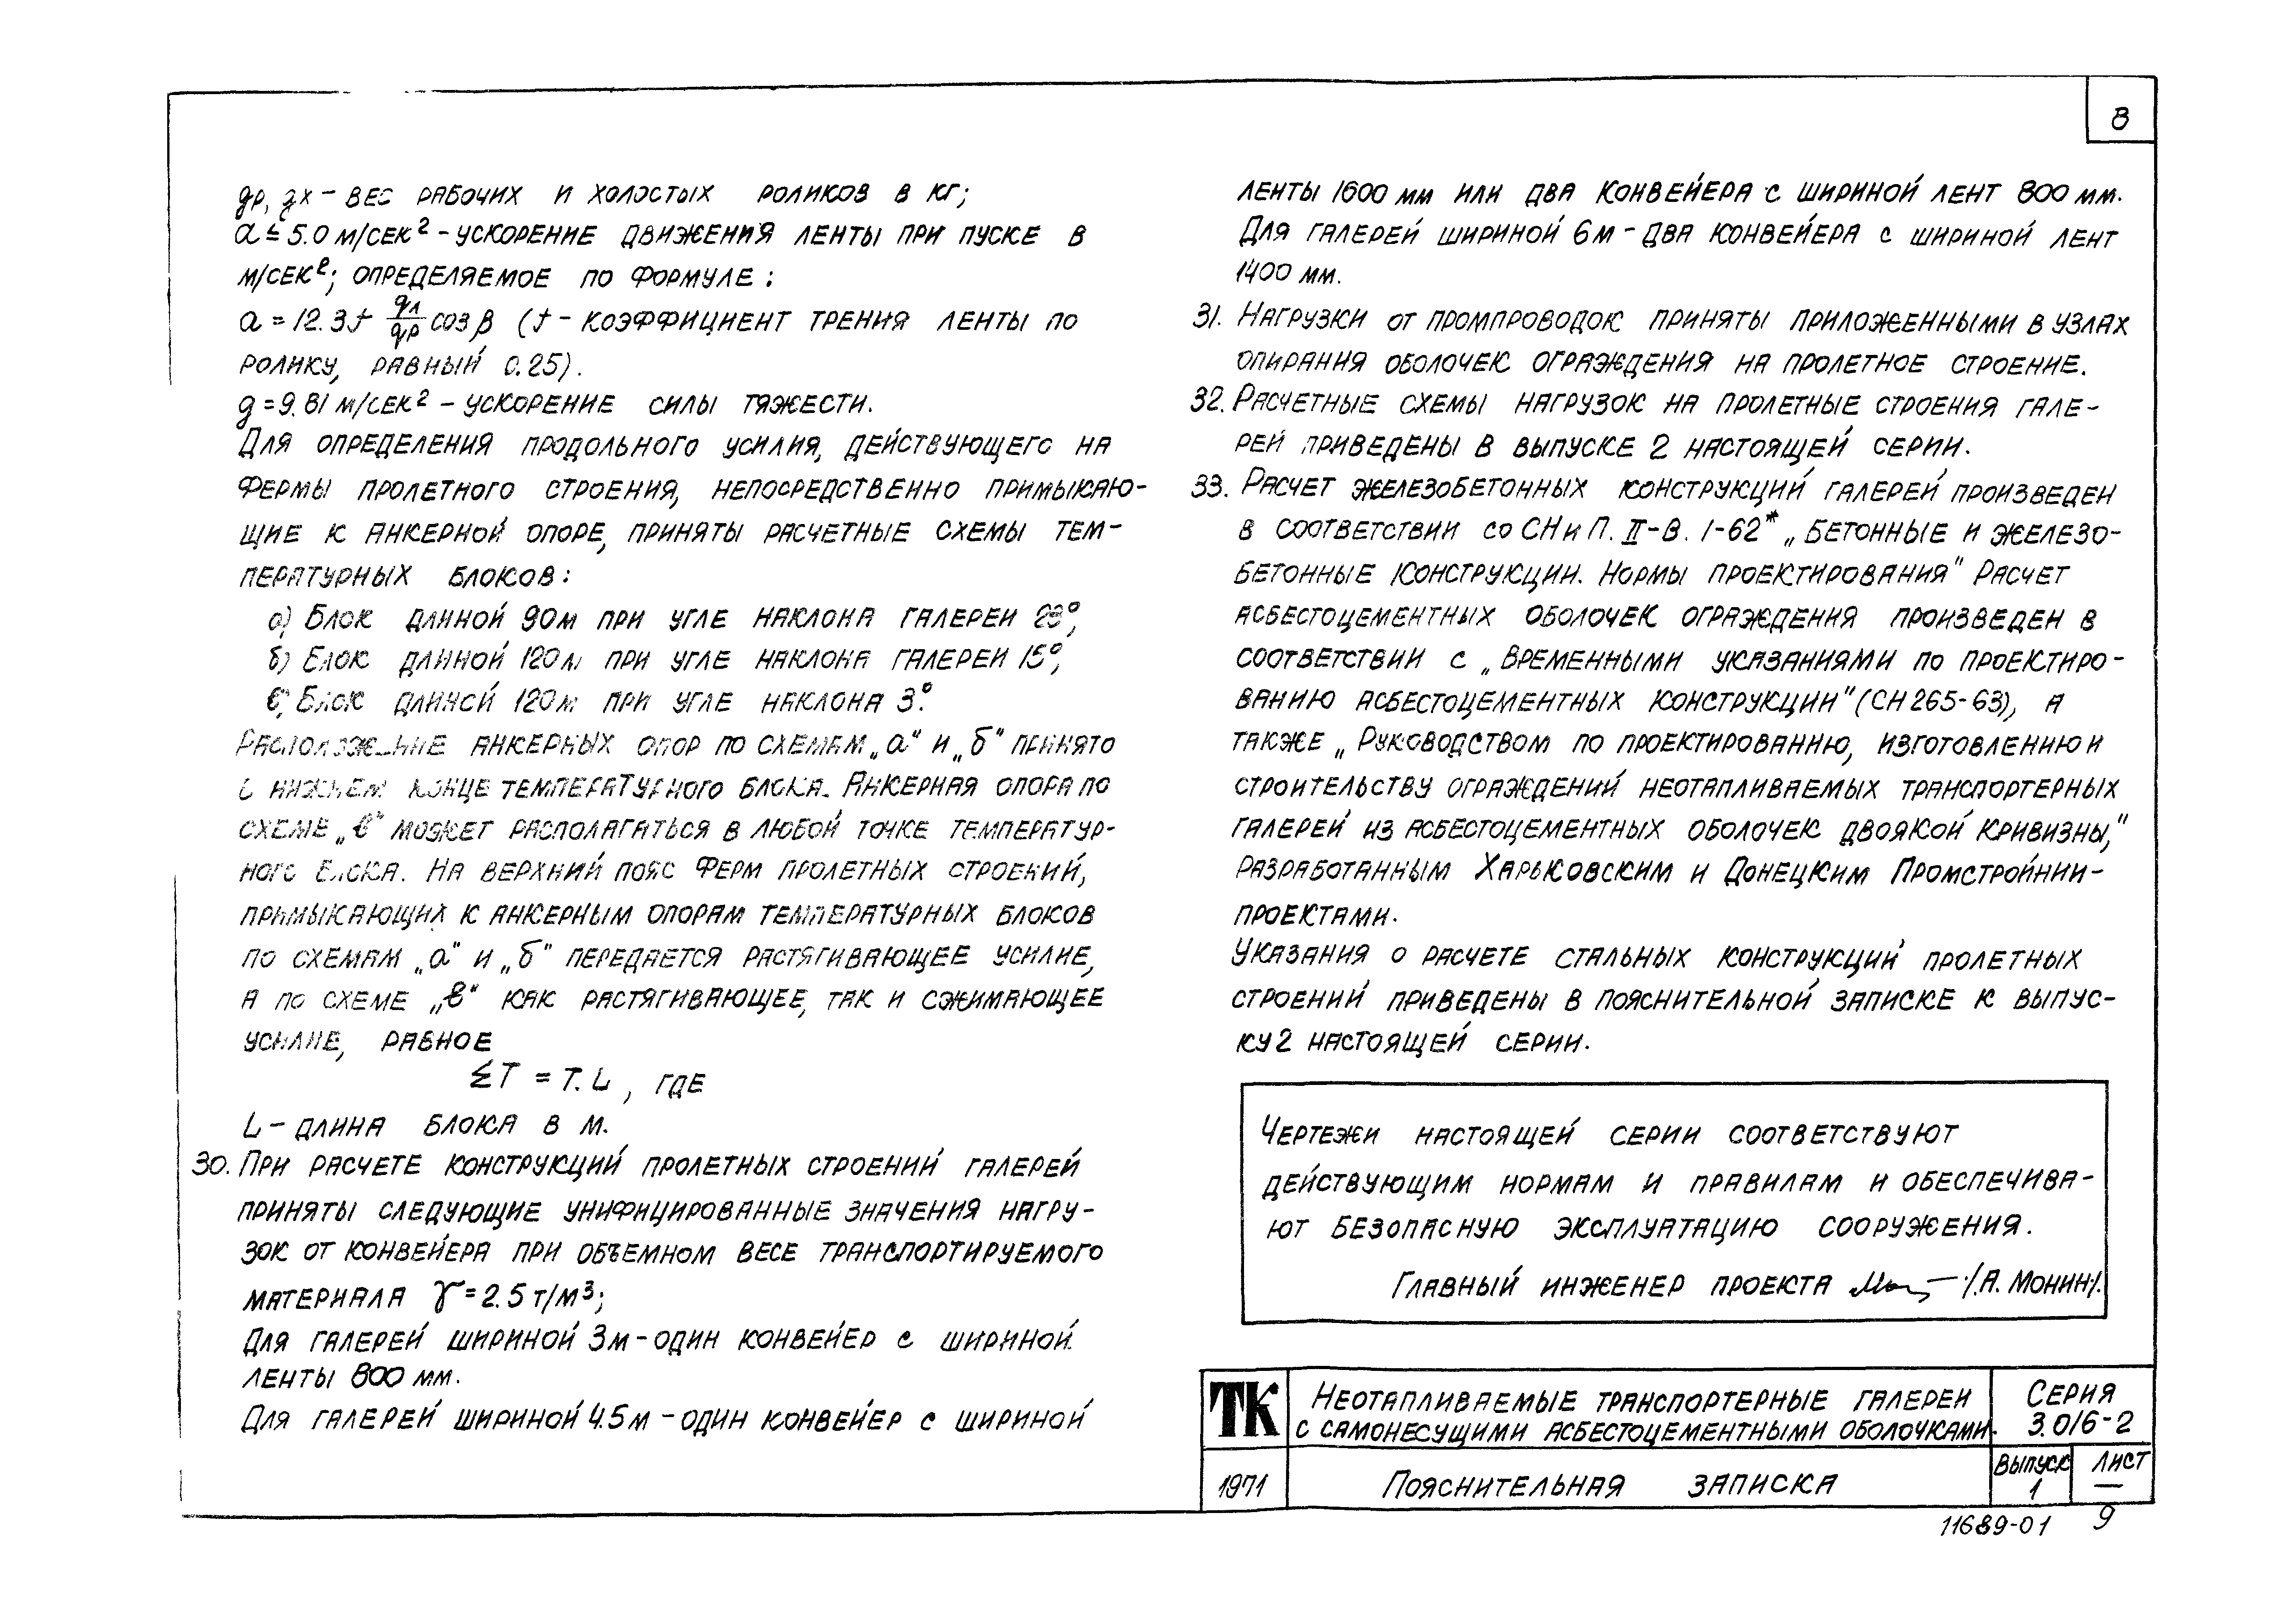 8
gр, gх – вес рабочих и холостых роликов в кг;
a ≤ 5.0 м/сек² – ускорение движения ленты при пуске в
м/сек²; определяемое по формуле:
a = 12.3f qл/qр cos β (f – коэффициент трения ленты по
ролику, равный 0.25).
g = 9.81 м/сек² – ускорение силы тяжести.
Для определения продольного усилия, действующего на
фермы пролетного строения, непосредственно примыкаю-
щие к анкерной опоре, приняты расчетные схемы тем-
пературных блоков:
а) Блок длиной 90м при угле наклона галереи
б) Блок длиной 120м при угле наклона галереи 15°,
в) Блок длиной 120м при угле наклона 3°.
Расположение анкерных опор по схемам „а" и „б" принято
в нижнем конце температурного блока. Анкерная опора по
схеме „в" может располагаться в любой точке температур-
ного блока. На верхний пояс ферм пролетных строений,
примыкающих к анкерным опорам температурных блоков
по схемам „а" и „б" передается растягивающее усилие,
а по схеме „в" как растягивающее, так и сжимающее
усилие, равное
ΣT = T.L, где
L – длина блока в м.
30. При расчете конструкций пролетных строений галерей
приняты следующие унифицированные значения нагру-
зок от конвейера при объемном весе транспортируемого
материала γ = 2.5 т/м³;
Для галерей шириной 3м – один конвейер с шириной
ленты 800 мм.
Для галерей шириной 4.5м – один конвейер с шириной
ленты 1600 мм или два конвейера с шириной лент 800 мм.
Для галерей шириной 6м – два конвейера с шириной лент
1400 мм.
31. Нагрузки от промпроводок приняты приложенными в узлах
опирания оболочек ограждения на пролетное строение.
32. Расчетные схемы нагрузок на пролетные строения гале-
рей приведены в выпуске 2 настоящей серии.
33. Расчет железобетонных конструкций галерей произведен
в соответствии со СНиП. II-В. 1-62* „Бетонные и железо-
бетонные конструкции. Нормы проектирования" Расчет
асбестоцементных оболочек ограждения произведен в
соответствии с „Временными указаниями по проектиро-
ванию асбестоцементных конструкции" (СН 265-63), а
также „Руководством по проектированию, изготовлению и
строительству ограждений неотапливаемых транспортерных
галерей из асбестоцементных оболочек двоякой кривизны,"
разработанным Харьковским и Донецким Промстройнии-
проектами.
Указания о расчете стальных конструкций пролетных
строений приведены в пояснительной записке к выпус-
ку 2 настоящей серии.
Чертежи настоящей серии соответствуют
действующим нормам и правилам и обеспечива-
ют безопасную эксплуатацию сооружения.
Главный инженер проекта /А. Монин/.
ТК
Неотапливаемые транспортерные галереи
с самонесущими асбестоцементными оболочками.
Серия
3.016-2
1971
Пояснительная записка
Выпуск
1
Лист
—
11689-01 9